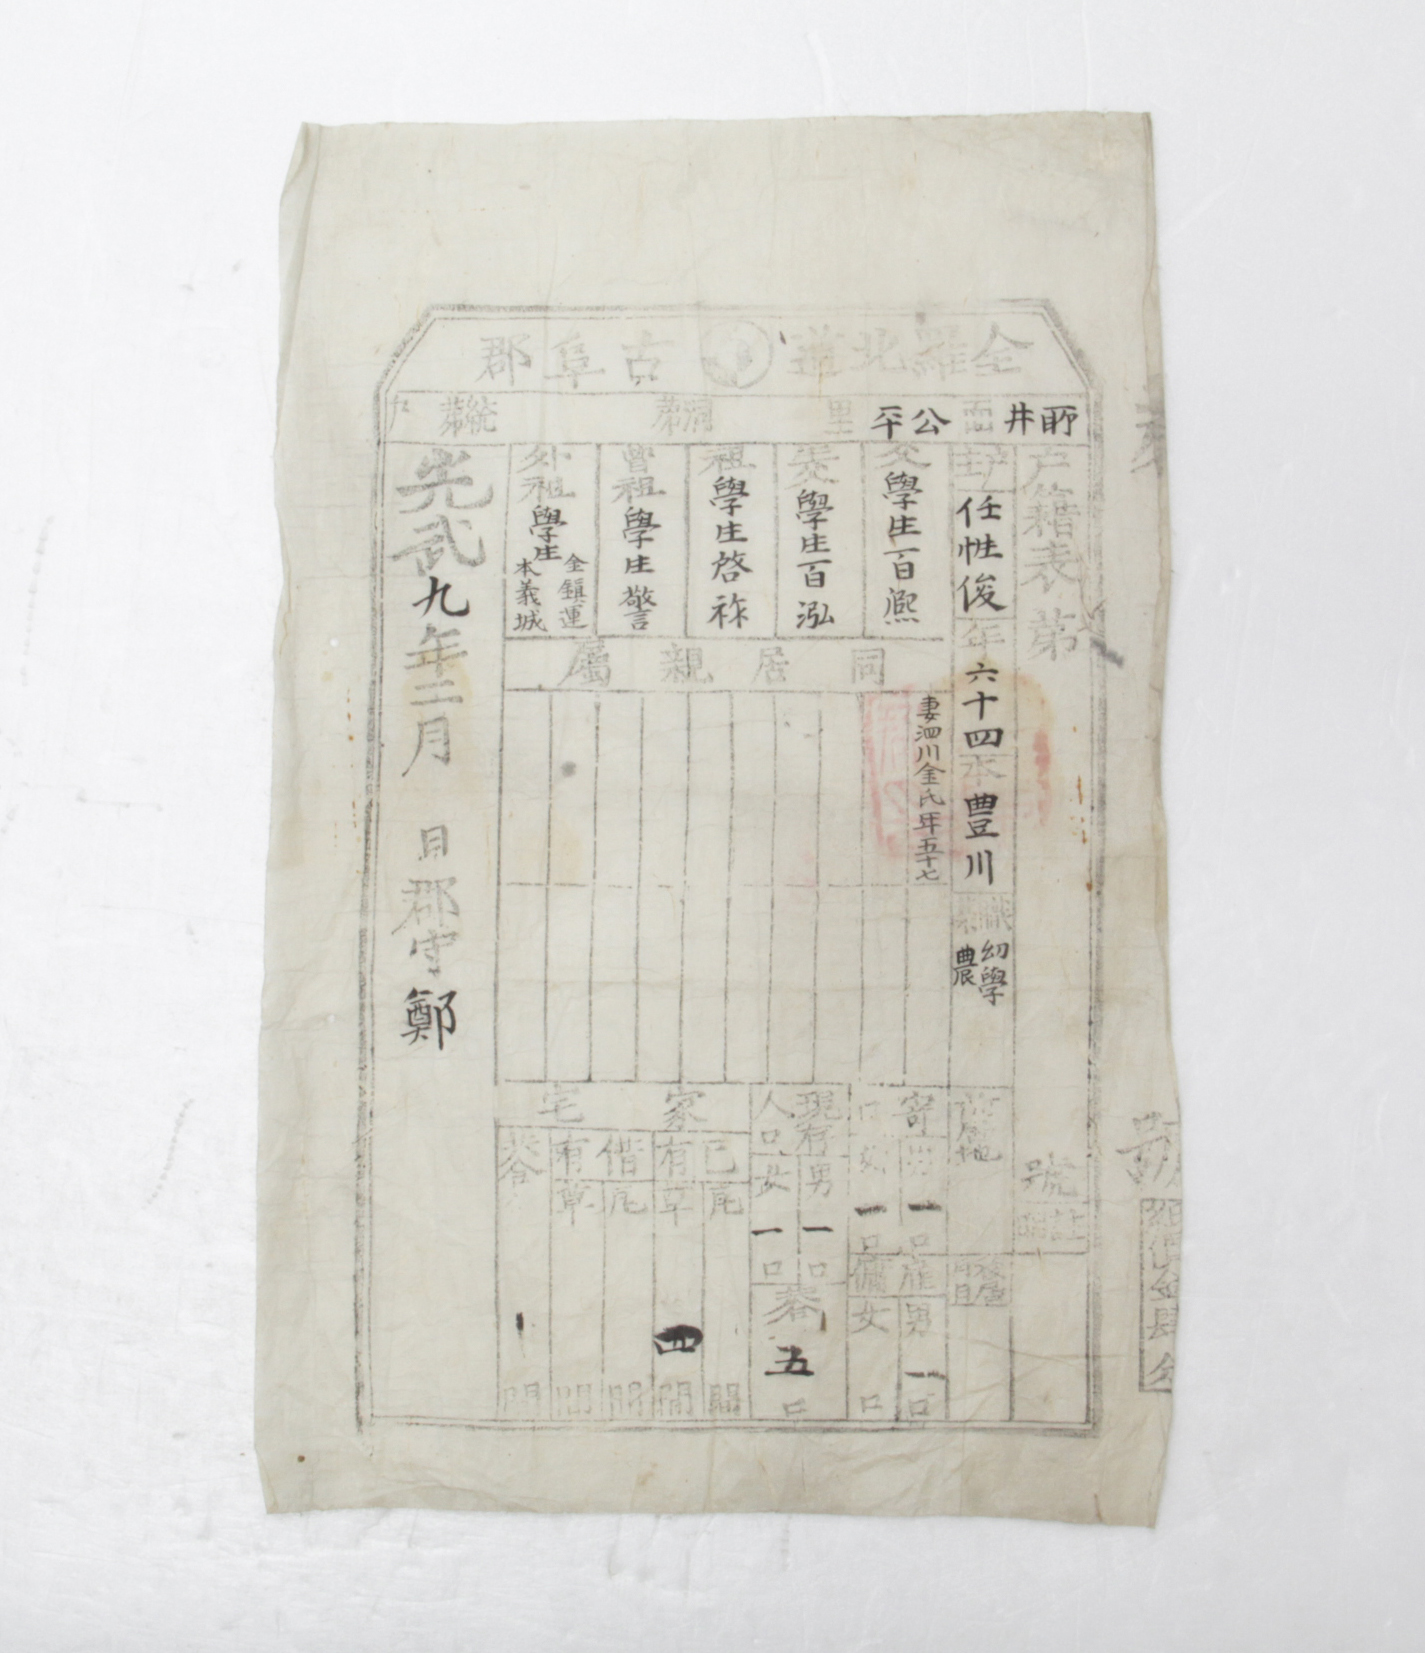 全羅北道 古阜郡
所井面 公平里 第 洞 第 統 戶
戶籍表 第 號
戶主 任性俊 年 六十四 本 豊川 職業 幼學 農
父 學生 百凞
生父 學生 百泓
祖 學生 啓祚
曾祖 學生 敬言
外祖 學生 金鎭運 本義城
同居親屬
妻泗川金氏年五十七
前居地
寄口 男 一口 女 一口
雇傭 男 一口 女 口
現存人口 男 一口 女 一口
共合 五口
家宅
己有 瓦 間 草 四間
借有 瓦 間 草 間
共合 間
光武九年二月 日 郡守 鄭
號